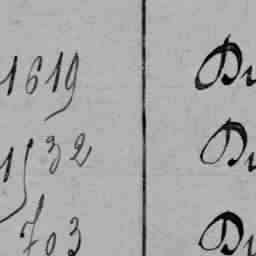 1619 Du
1532 Du
703 Du